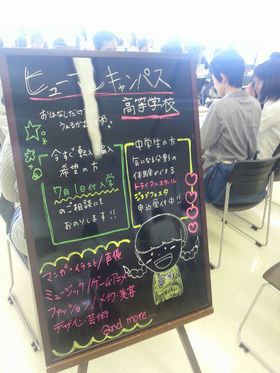 ヒューマンキャンパス
高等学校
おはなしだけ
今すぐ転入・編入
希望の方
7月1日付入学
のご相談にも
おのりします!!
中学生の方
気になる分野の
体験ができる
トライアルスクール
ジョブフェスタ
申込受付中!!
マンガ・イラスト/声優
ミュージック/ゲーム・アニメ
ファッション/メイク・美容
デザイン・芸術
and more...